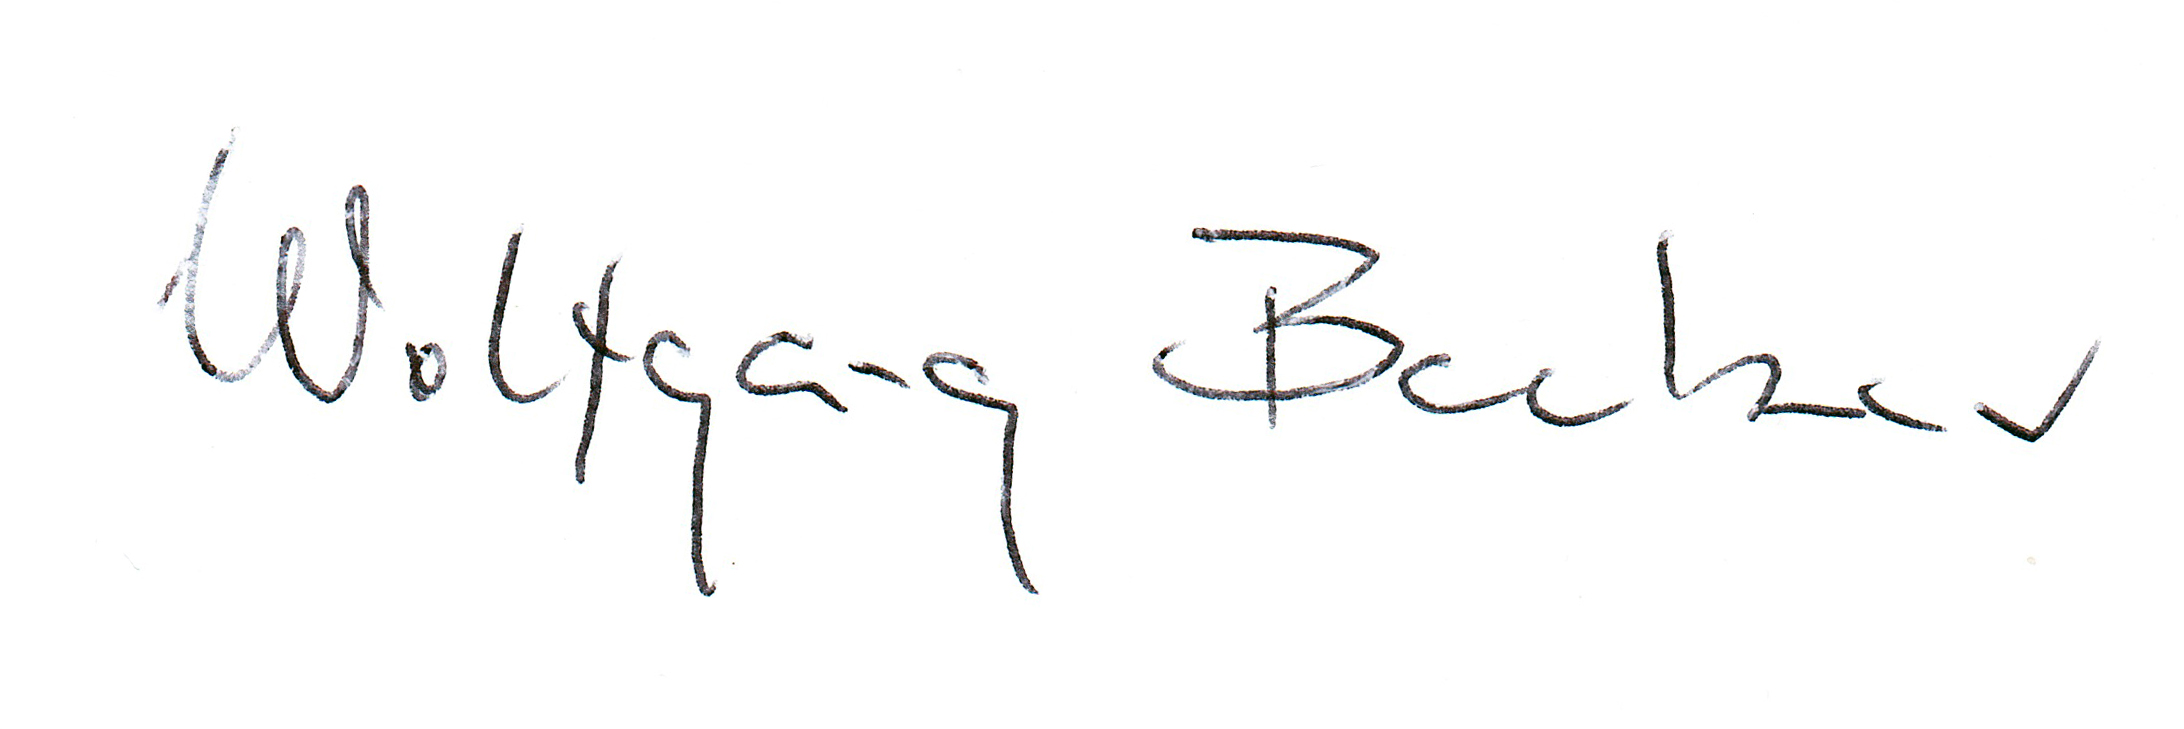 Wolfgang Becker